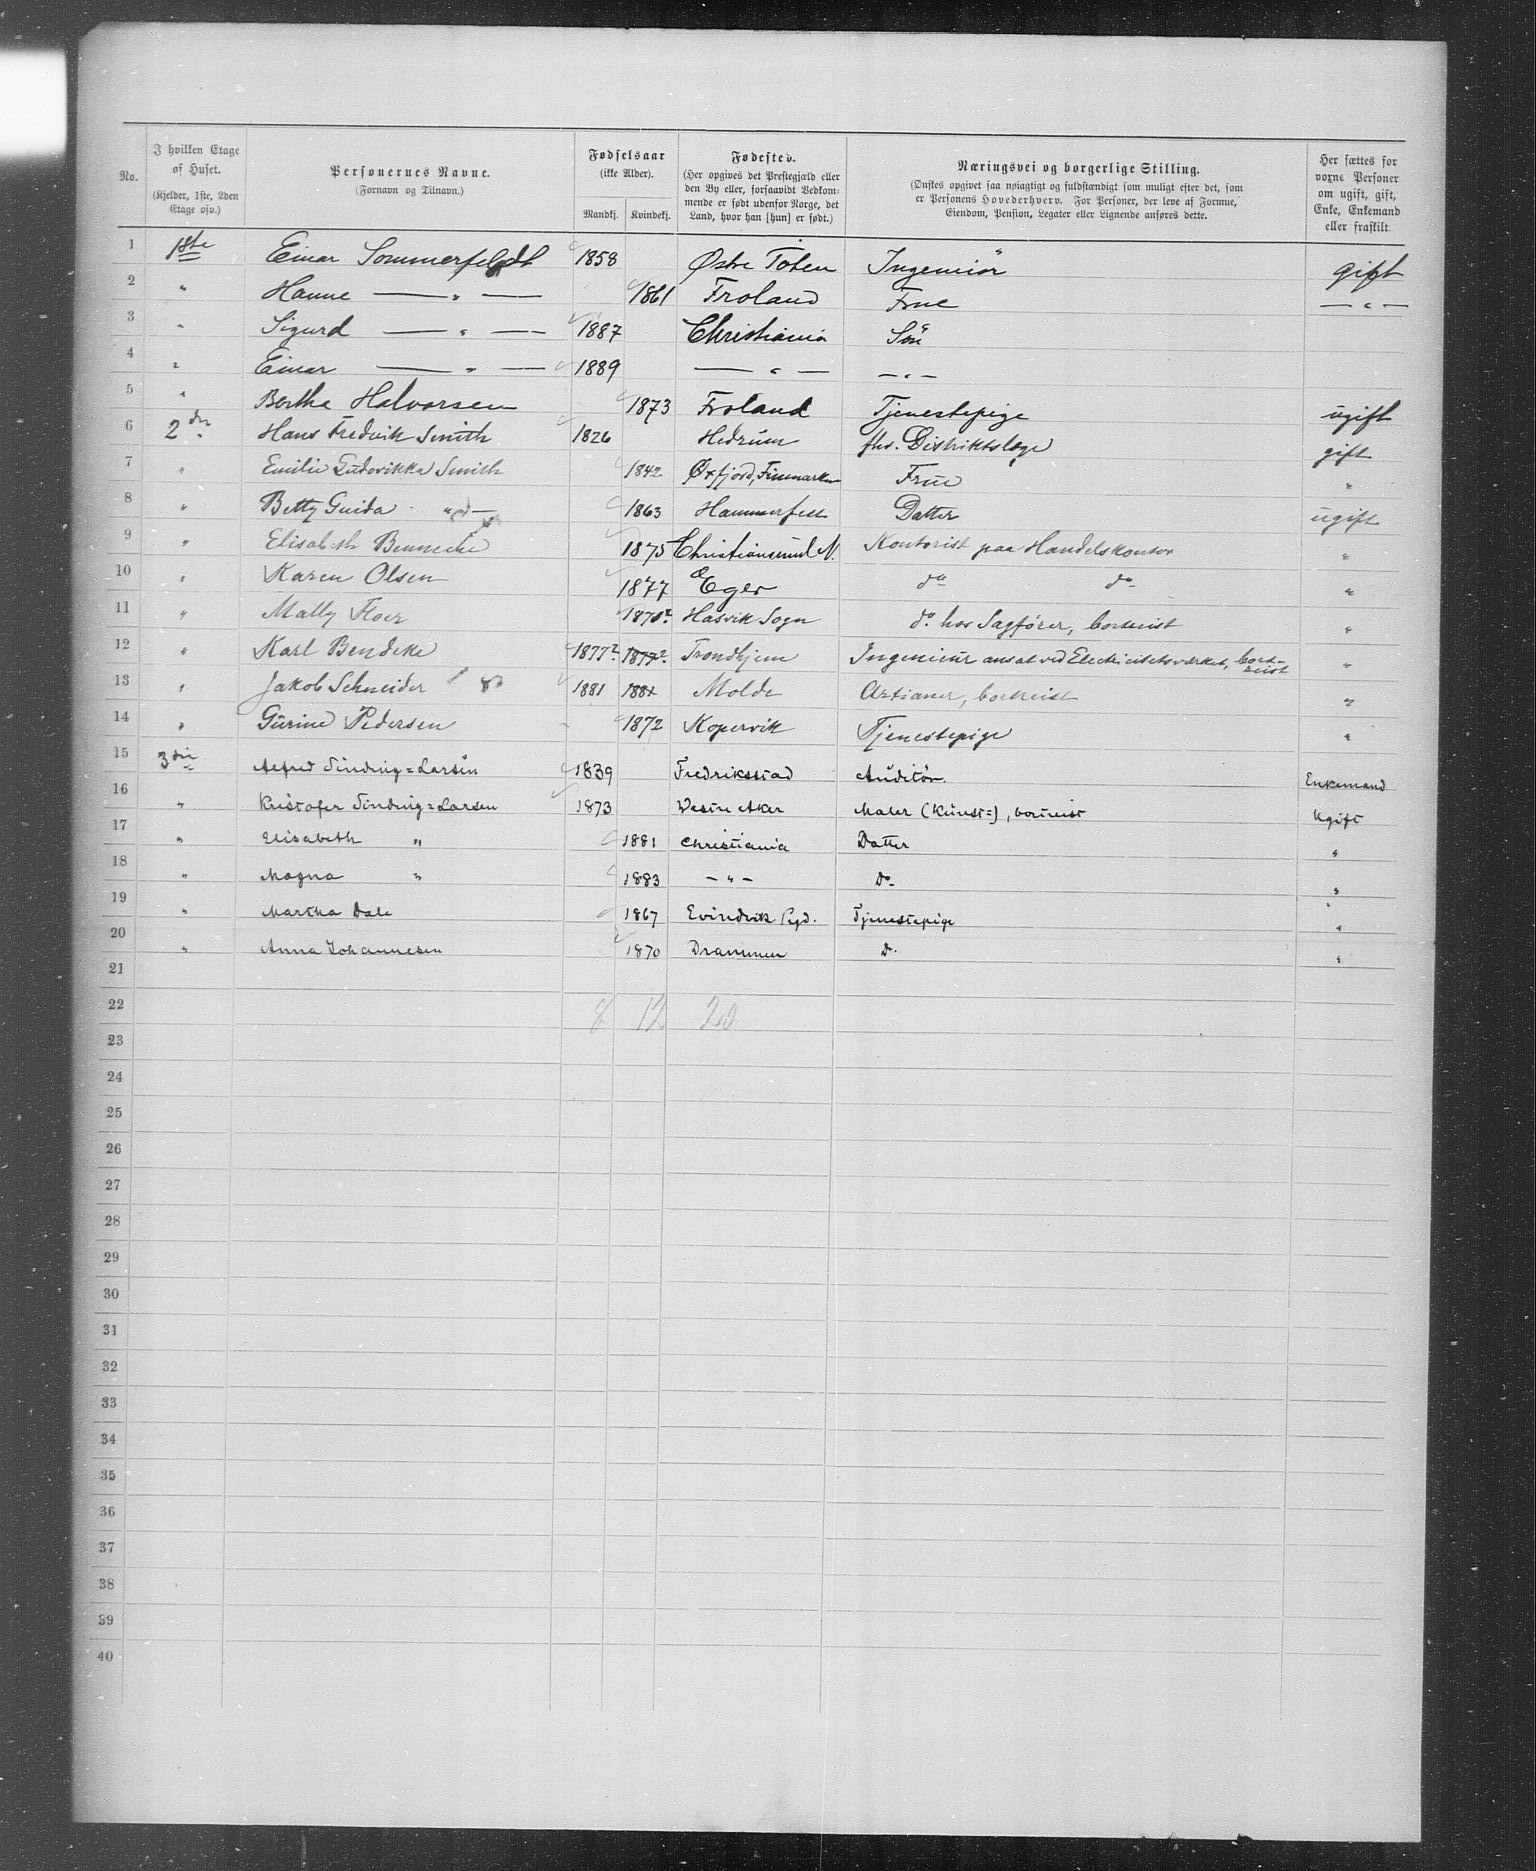 No. | I hvilken Etage of Huset. (Kjelder, 1ste, 2den Etage osv.) | Personernes Navne. (Fornavn og Tilnavn.) | Fødselsaar (ikke Alder). Mandkj. | Kvindekj. | Fødested. (Her opgives det Prestegjæld eller den By eller, forsaavidt Vedkommende er født udenfor Norge, det Land, hvor han [hun] er født.) | Næringsvei og borgerlige Stilling. (Ønskes opgivet saa nøiagtigt og fuldstændigt som muligt efter det, som er Personens Hovederhverv. For Personer, der leve af Formue, Eiendom, Pension, Legater eller Lignende anføres dette.) | Her sættes for voxne Personer om ugift, gift, Enke, Enkemand eller fraskilt.
1 | 1ste | Einar Sommerfeldt | 1858 | | Østre Toten | Ingeniör | gift
2 | " | Hanne — " — | | 1861 | Froland | Frue | — " —
3 | " | Sigurd — " — | 1887 | | Christiania | Sön |
4 | " | Einar — " — | 1889 | | — " — | — " — |
5 | " | Bertha Halvorsen | | 1873 | Froland | Tjenestepige | ugift
6 | 2den | Hans Fredrik Smith | 1826 | | Hedrum | fhv. Distriktslæge | gift
7 | " | Emilie Ludovikka Smith | | 1842 | Øxfjord, Finmarken | Frue | "
8 | " | Betty Guida " — | | 1863 | Hammerfest | Datter | ugift
9 | " | Elisabeth Bennecke | | 1875 | Christiansund N. | Kontorist paa Handelskontor | "
10 | " | Karen Olsen | | 1877 | Eger | do do | "
11 | " | Mally Floer | | 187 ?. | Hasvik Sogn | do. hos Sagfører, bortreist | "
12 | " | Karl Bendeke | 1877?. | 1877?. | Trondhjem | Ingenieur ansat ved Electricitetsværket, bortreist | "
13 | " | Jakob Schneider | 1881 | 1881 | Molde | Artianer, bortreist | "
14 | " | Gurine Pedersen | | 1872 | Kopervik | Tjenestepige | "
15 | 3die | Alfred Sinding=Larsen | 1839 | | Fredriksstad | Auditör. | Enkemand
16 | " | Kristofer Sinding=Larsen | 1873 | | Vestre Aker | Maler (Kunst=), bortreist | Ugift
17 | " | Elisabeth " | | 1881 | Christiania | Datter | "
18 | " | Magna " | | 1883 | — " — | Do | "
19 | " | Martha Dale | | 1867 | Evindvik Pgd. | Tjenestepige | "
20 | " | Anna Johannesen | | 1870 | Drammen | D. | "
21
22 | | | 8 | 12 | 20
23
24
25
26
27
28
29
30
31
32
33
34
35
36
37
38
39
40